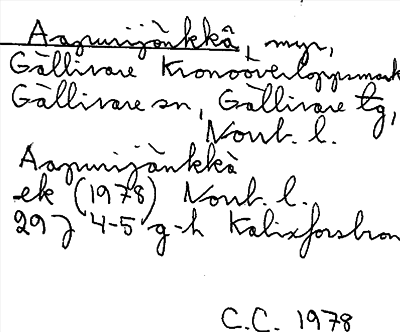 Aapurijänkkä, myr,
Gällivare Kronoöverloppsmark
Gällivare sn, Gällivare tg,
Norrb. l.
Aapurijänkkä
ek (1978) Norrb. l.
29J 4-5 g-h Kalixforsbron
C.C. 1978